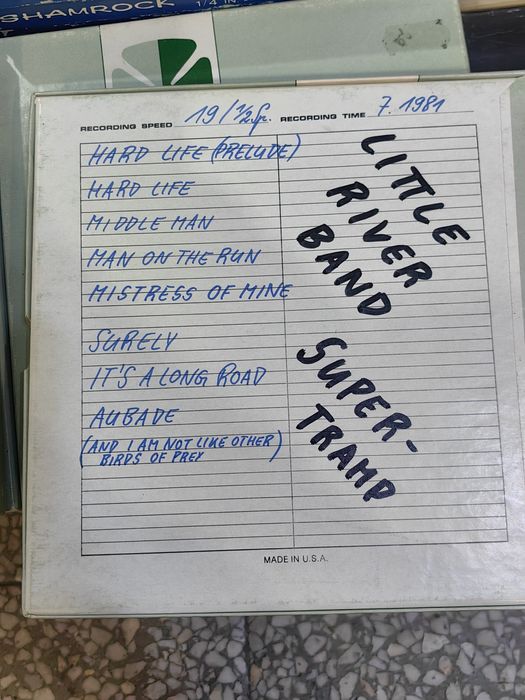 SHAMROCK 1/4 IN.
RECORDING SPEED 19/1/2Sp. RECORDING TIME 7.1981
HARD LIFE (PRELUDE)
HARD LIFE
MIDDLE MAN
MAN ON THE RUN
MISTRESS OF MINE
SURELY
IT'S A LONG ROAD
AUBADE
(AND I AM NOT LIKE OTHER
BIRDS OF PREY)
LITTLE
RIVER
BAND
SUPER-
TRAMP
MADE IN U.S.A.